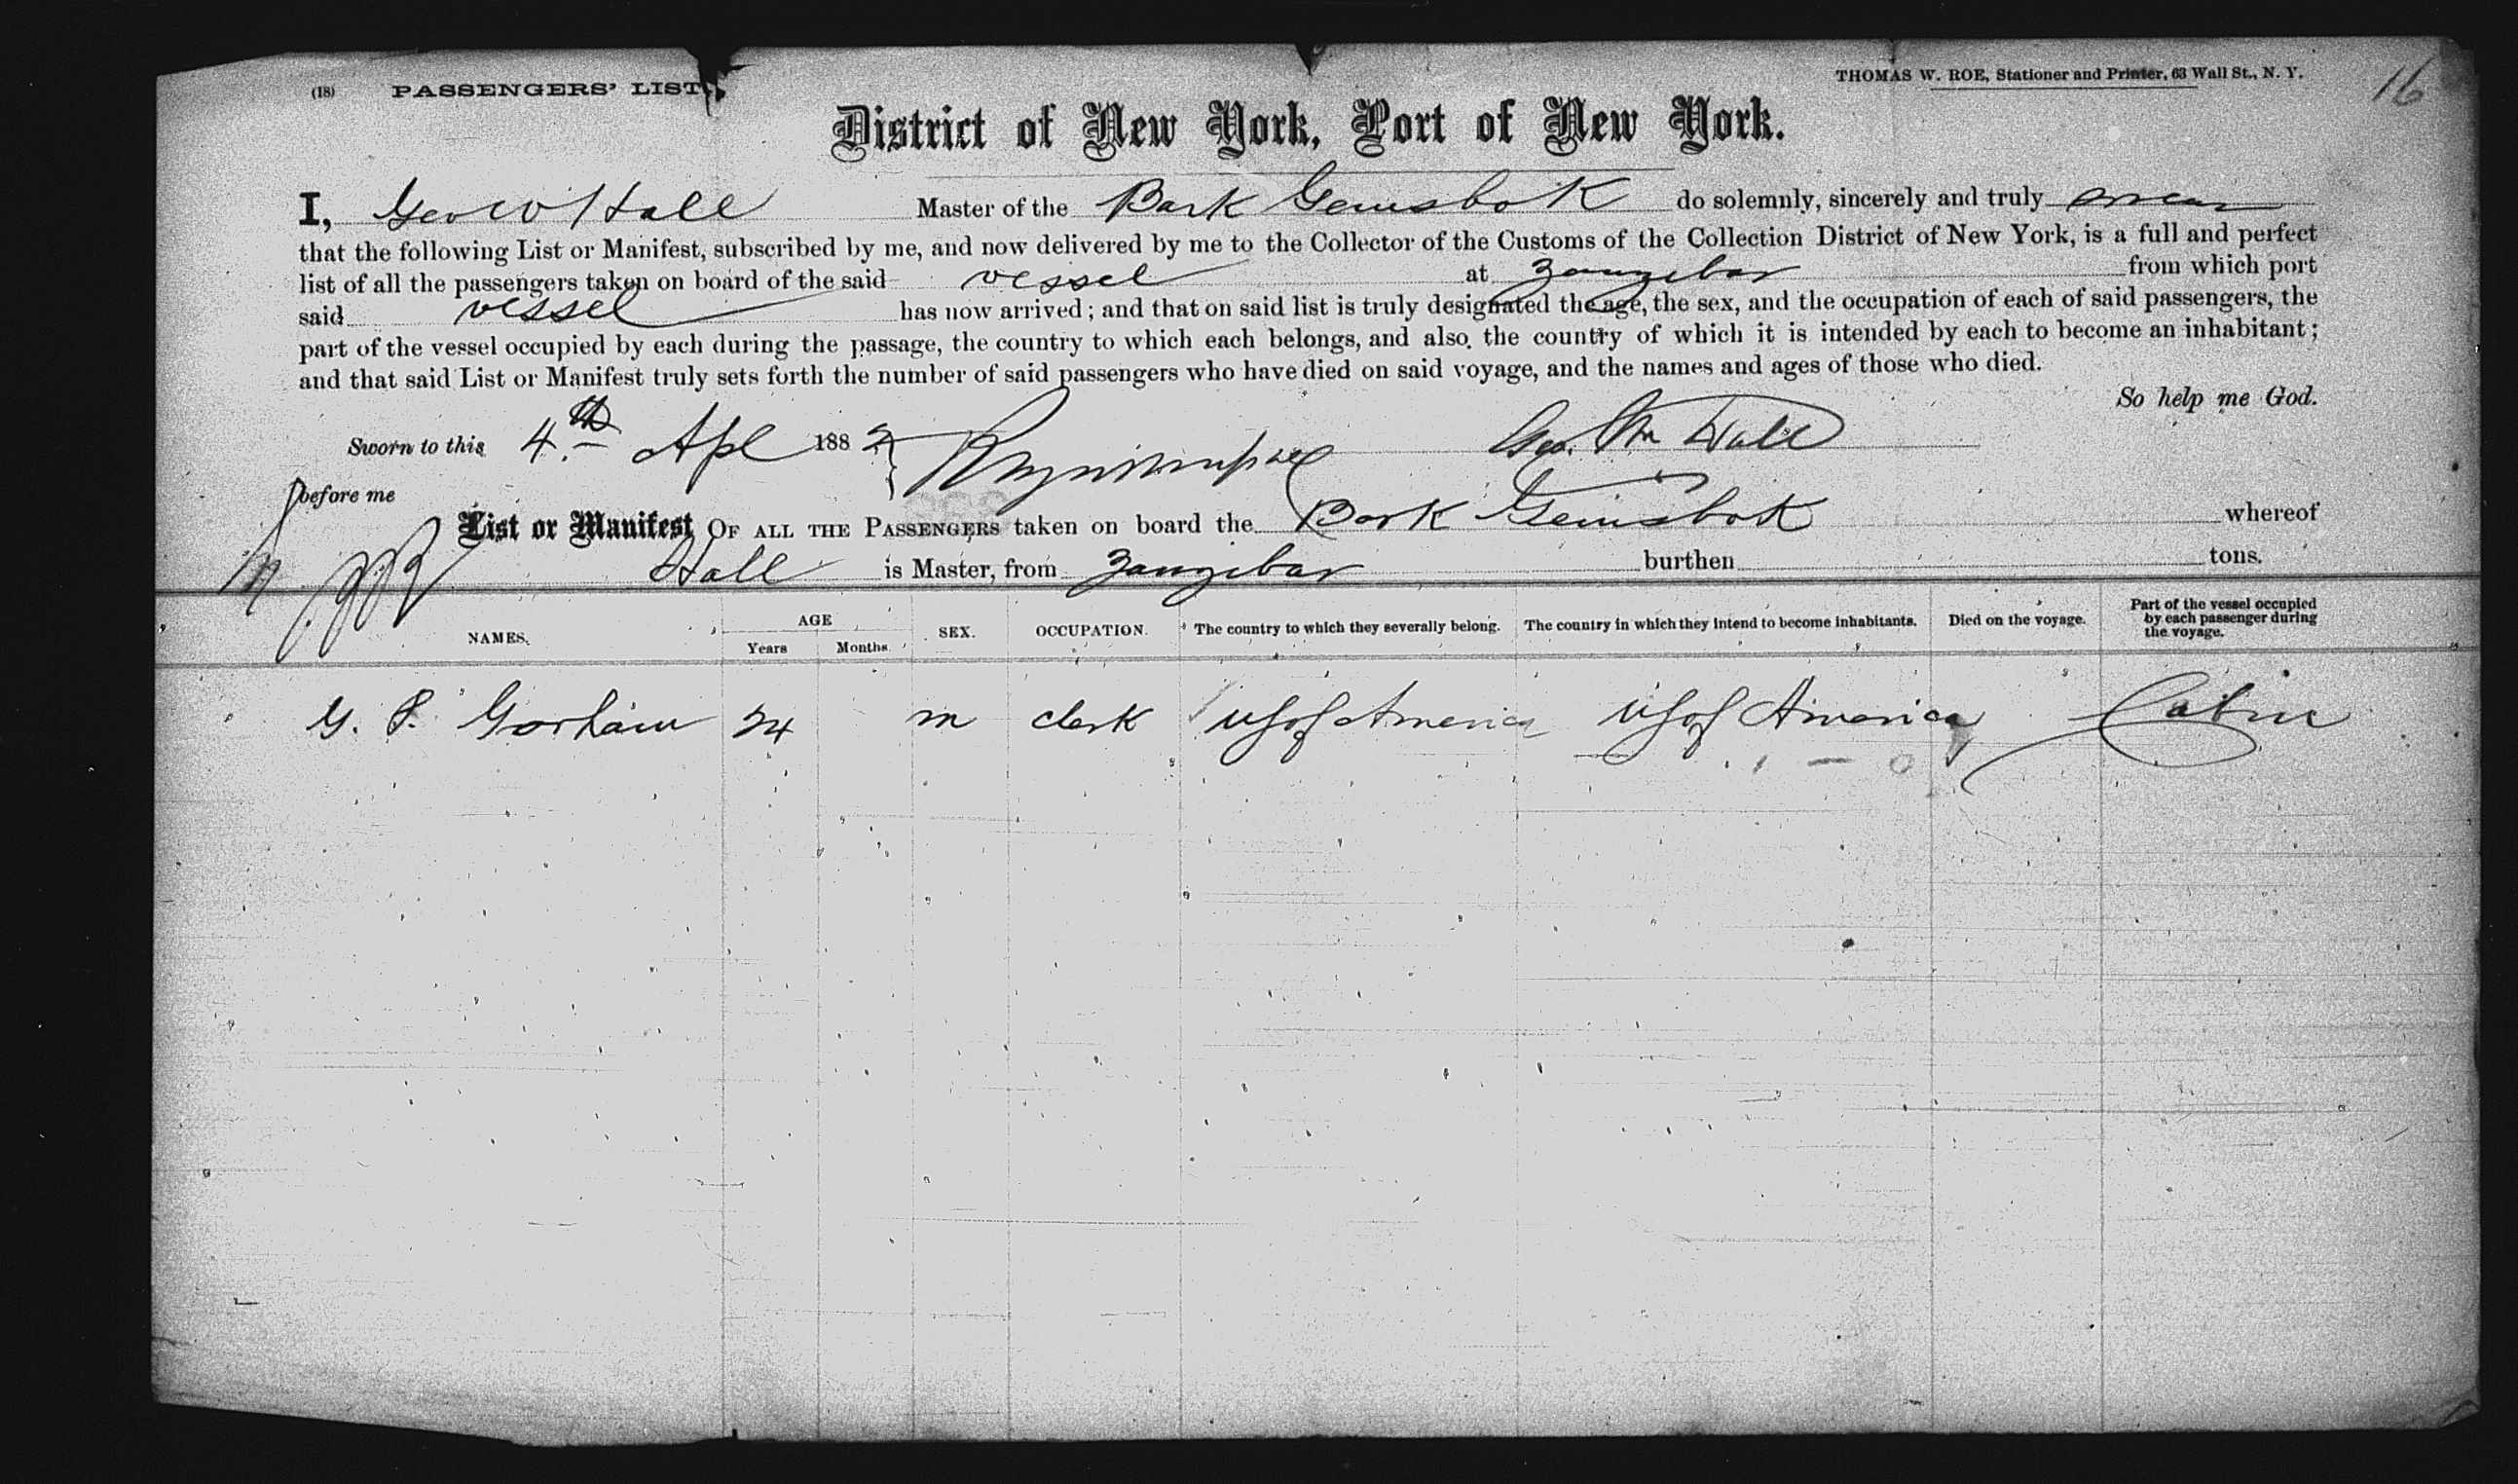 (18) PASSENGERS' LIST. THOMAS W. ROE, Stationer and Printer, 63 Wall St., N. Y. 16
District of New York, Port of New York.
I, Geo W Hall Master of the Bark Gemsbok do solemnly, sincerely and truly swear
that the following List or Manifest, subscribed by me, and now delivered by me to the Collector of the Customs of the Collection District of New York, is a full and perfect
list of all the passengers taken on board of the said vessel at Zanzibar from which port
said vessel has now arrived; and that on said list is truly designated the age, the sex, and the occupation of each of said passengers, the
part of the vessel occupied by each during the passage, the country to which each belongs, and also the country of which it is intended by each to become an inhabitant;
and that said List or Manifest truly sets forth the number of said passengers who have died on said voyage, and the names and ages of those who died.
So help me God.
Sworn to this 4th Apl 1882 Geo. Wm Hall
before me
List or Manifest OF ALL THE PASSENGERS taken on board the Bark Gemsbok whereof
Hall is Master, from Zanzibar burthen tons.
NAMES. AGE Years Months SEX. OCCUPATION. The country to which they severally belong. The country in which they intend to become inhabitants. Died on the voyage. Part of the vessel occupied by each passenger during the voyage.
G. P. Gorham 24 m clerk US of America US of America Cabin